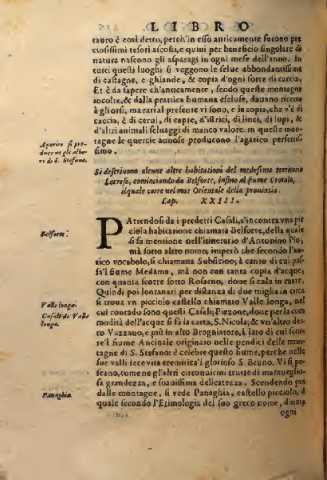 LIBRO
tauro è così detto, perch'in esso anticamente furono pre
ciosissimi tesori ascosti, e quiui per beneficio singolare di
natura nascono gli asparagi in ogni mese dell'anno. In
tutti questi luoghi si veggono le selue abbondantissime
di castagne, e ghiande, & copia d'ogni sorte di caccia.
Et è da sapere ch'anticamente, sendo queste montagne
incolte, & dalla pratica humana escluse, dauano ricetto
à gli orsi, ma
caccia, è di cerui, di capre, d'istrici, di linci, di lupi, &
d'altri animali seluaggi di manco valore. in queste mon-
tagne le quercie annose producono l'agarico perfettis
simo.
Agarico si pro-
duce ne gli albe
ri di S. Stefano.
Si descriuono alcune altre habitationi del medesimo territorio
Locrese, cominciando da Belforte, insino al fiume Crotalo,
il quale corre nel mar Orientale della prouincia.
Cap. XXIII.
Belforte.
PArtendosi da i predetti Casali, s'incontra vna pic
ciola habitatione chiamata Belforte, della quale
si fa mentione nell'itinerario d'Antonino Pio,
mà sotto altro nome, imperò che secondo l'an-
tico vocabolo, si chiamaua Subsicino; à canto di cui pas-
sa'l fiume Medama, mà non con tanta copia d'acque,
con quanta scorre sotto Rosarno, doue si cala in mare.
Quindi poi lontanati per distanza di due miglia in circa
si troua vn picciolo castello chiamato Valle longa, nel
cui contado sono questi Casali; Pizzone, doue per la com
modità dell'acque si fà la carta, S. Nicola; & vn'altro det-
to Vazzano, e più in alto Brogniatore, à lato di cui scor-
re'l fiume Ancinale originato nelle pendici delle mon-
tagne di S. Stefano: è celebre questo fiume, perche nelle
sue valli fece vita eremitica'l glorioso S. Bruno. Vi si pe-
scano, come ne gl'altri circonuicini trutte di marauiglio-
sa grandezza, e suauissima delicatezza. Scendendo poi
dalle montagne, si vede Panaghia, castello picciolo, il
quale secondo l'Etimologia del suo greco nome, dinota
Valle longa.
Casali di Valle
longa.
Panaghia.
ogni